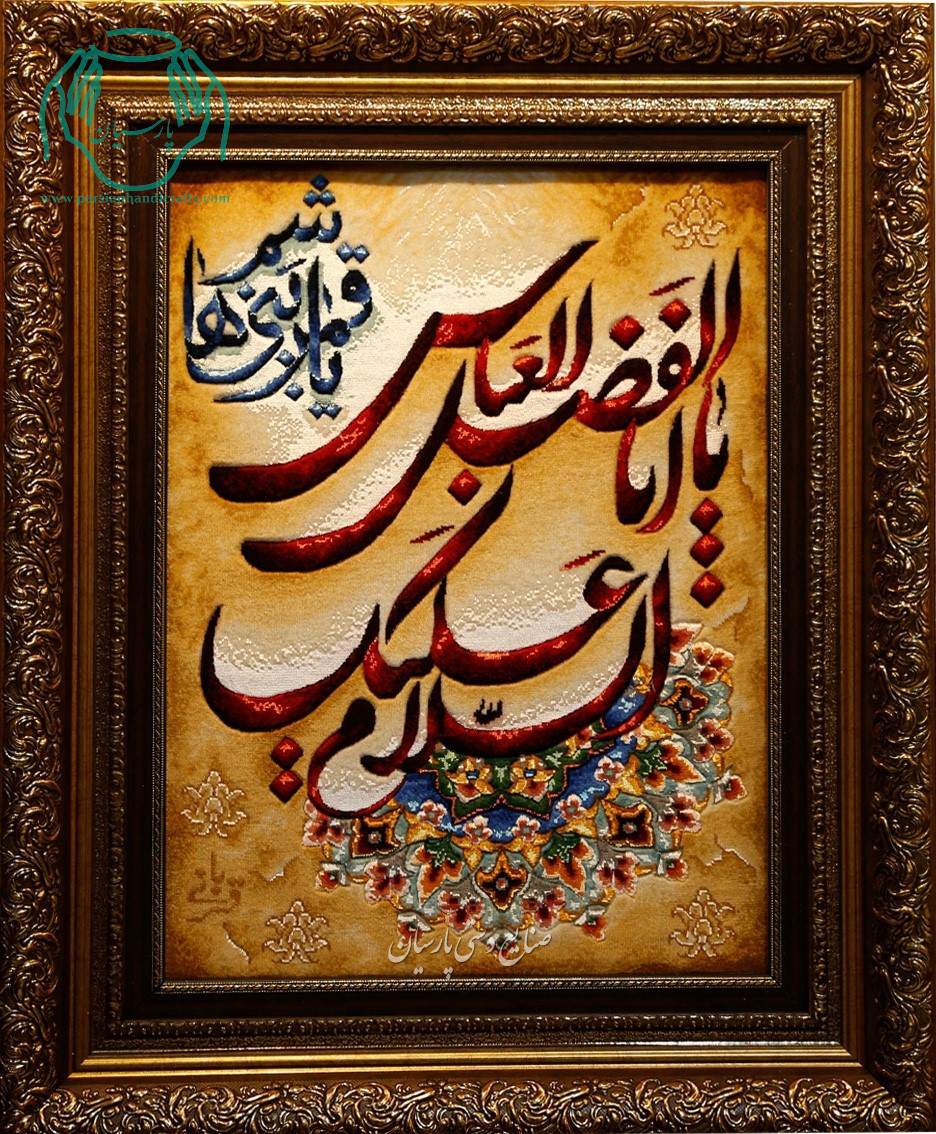 پارسیان
www.persianhandicrafts.com
یا قمر بنی هاشم
السلام علیک
یا اباالفضل العباس
قربانی
صنایع دستی پارسیان